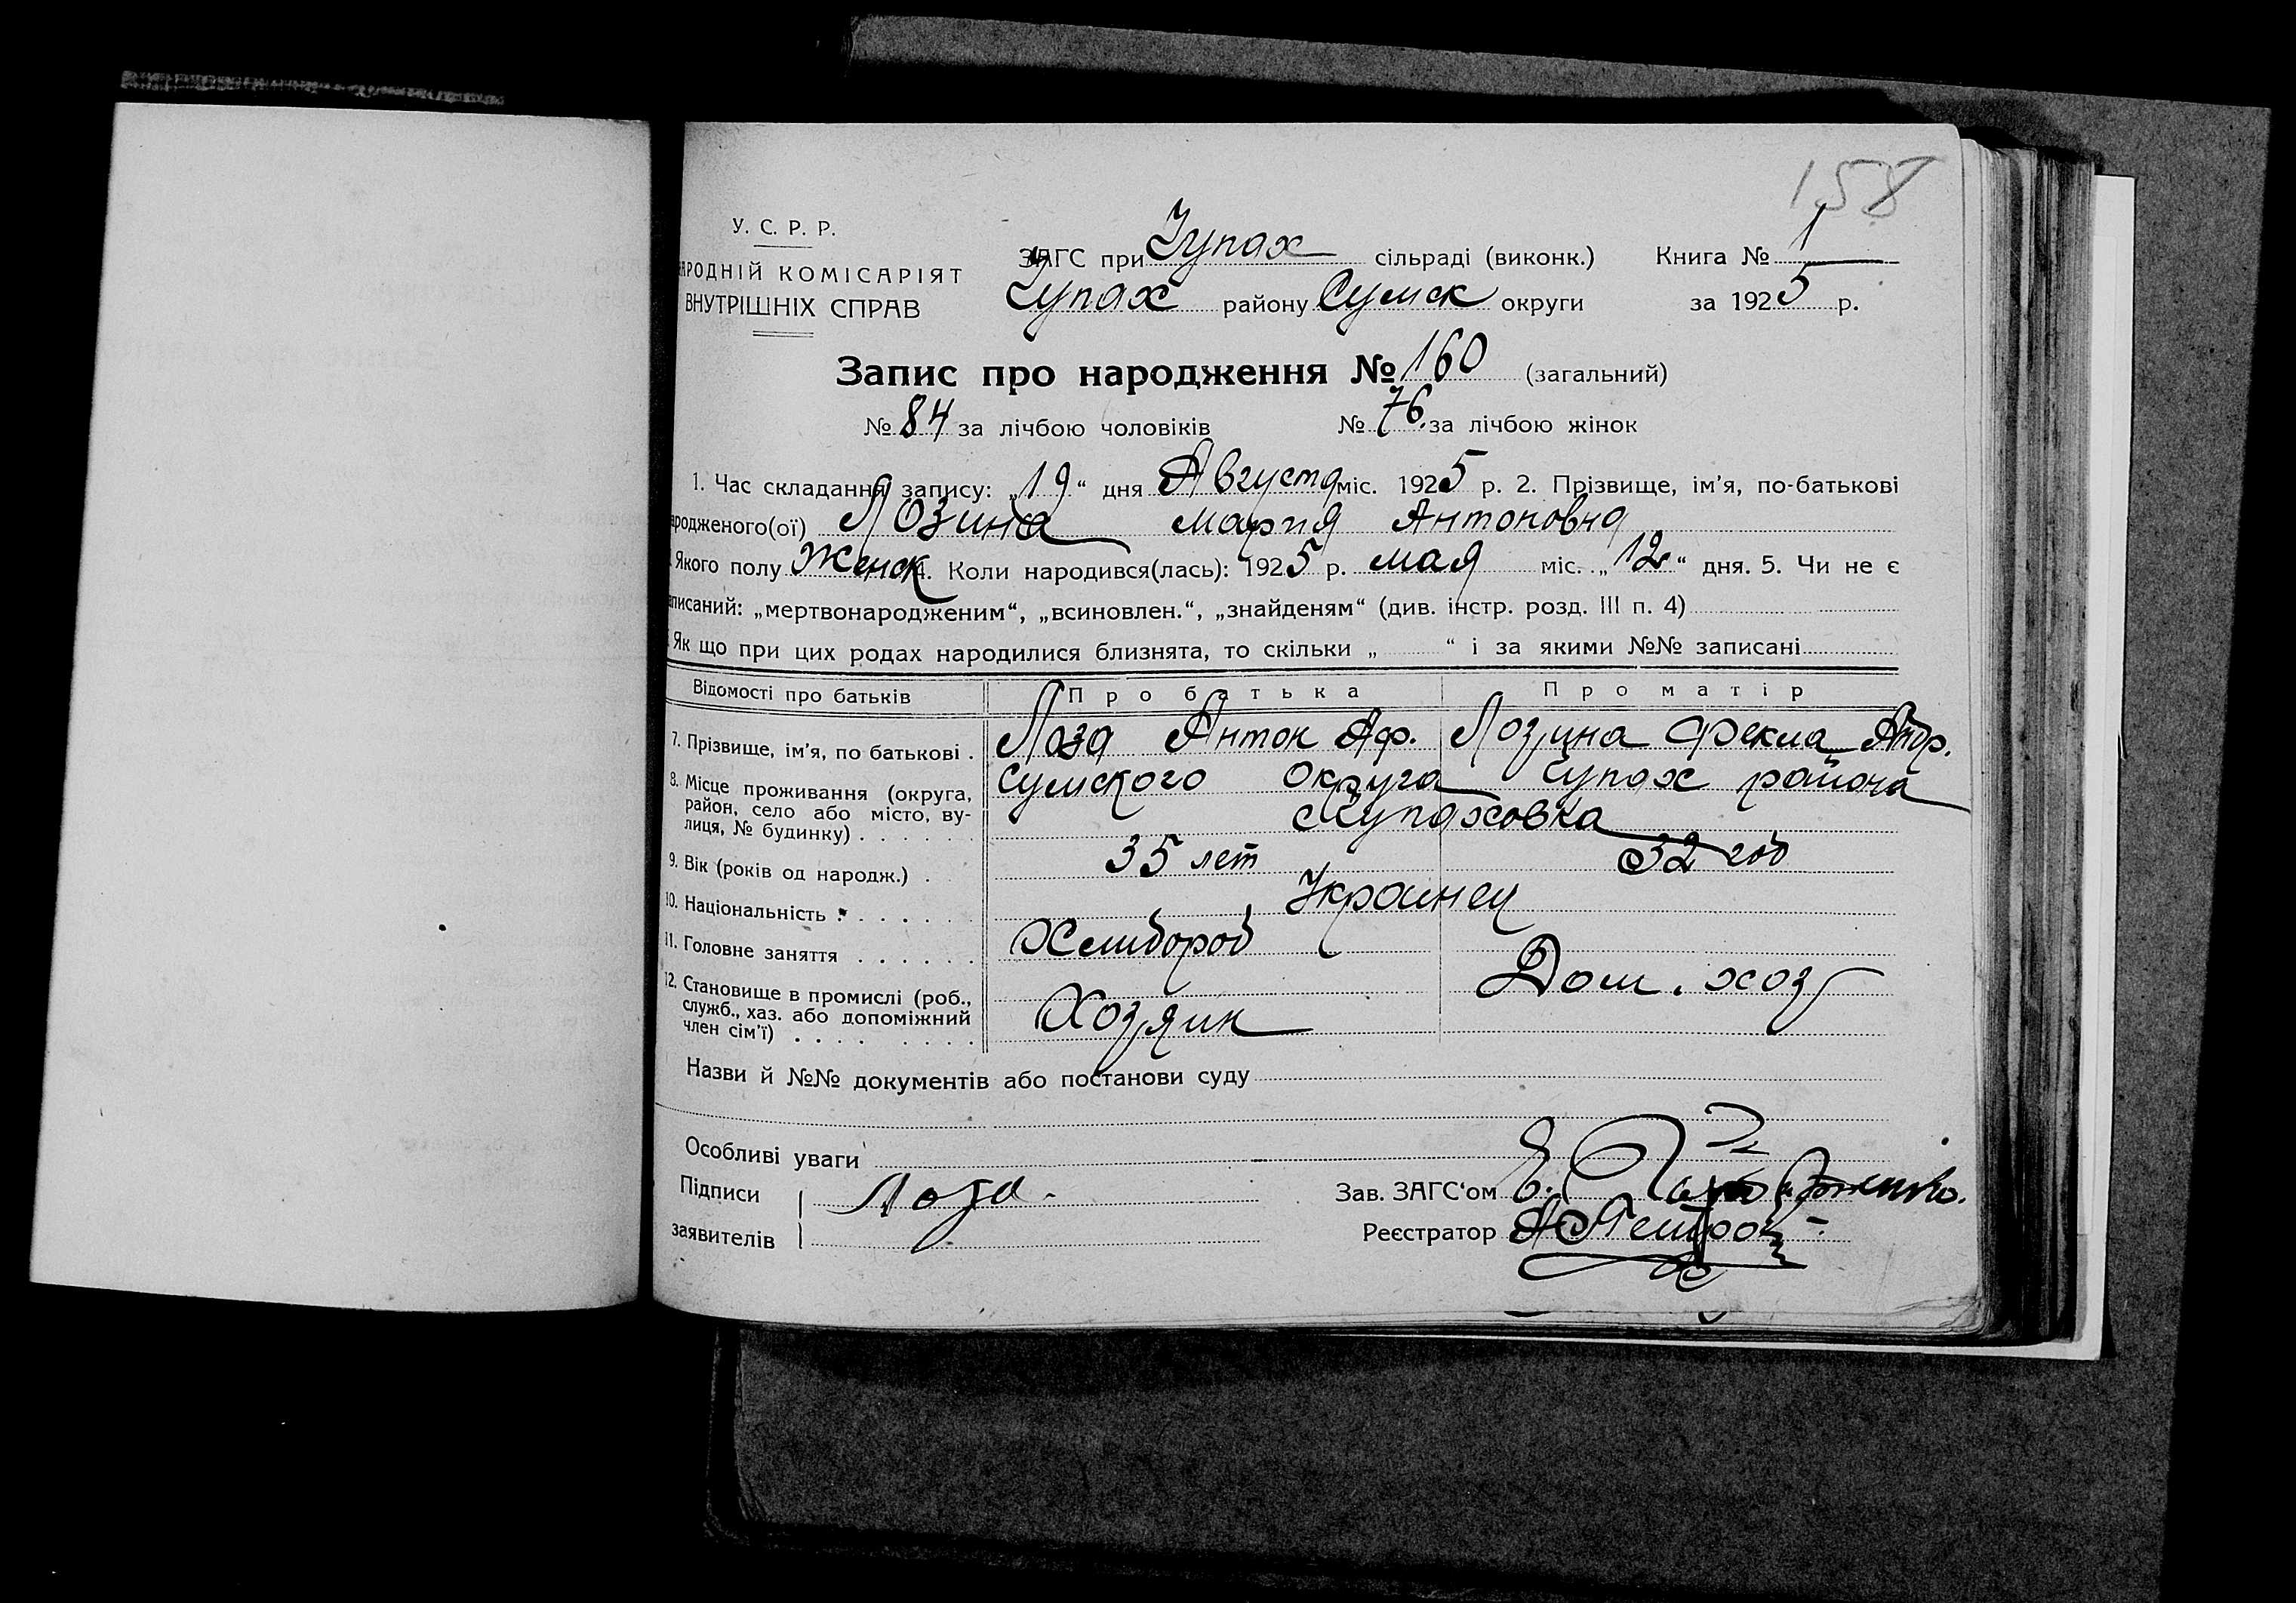 158
У. С. Р. Р.
АРОДНІЙ КОМІСАРІЯТ
ВНУТРІШНІХ СПРАВ
ЗАГС при Чупах сільраді (виконк.) Книга № 1
Чупах району Сумск округи за 1925 р.
Запис про народження № 160 (загальний)
№ 84 за лічбою чоловіків № 76. за лічбою жінок
1. Час складання запису: „19“ дня Августа міс. 1925 р. 2. Прізвище, ім’я, по-батькові
ародженого(ої) Лозина Мария Антоновна
Якого полу Женск 4. Коли народився(лась): 1925 р. мая міс. „12“ дня. 5. Чи не є
аписаний: „мертвонародженим“, „всиновлен.“, „знайденям“ (див. інстр. розд. III п. 4)
Як що при цих родах народилися близнята, то скільки „ “ і за якими №№ записані
Відомості про батьків Про батька Про матір
7. Прізвище, ім’я, по батькові . Лоза Антон Аф. Лозина Фекла Андр.
8. Місце проживання (округа, район, село або місто, вулиця, № будинку) . . . . . . Сумского Округа Чупах района
Чупаховка
9. Вік (років од народж.) . 35 лет 32 год
10. Національність . . . . . . Украинец
11. Головне заняття . . . . . . Хлибороб
12. Становище в промислі (роб., служб., хаз. або допоміжний член сім’ї) . . . . . . . . Хозяин Дом. хоз
Назви й №№ документів або постанови суду
Особливі уваги
Підписи Лоза. Зав. ЗАГС‘ом Е.
заявителів Реєстратор